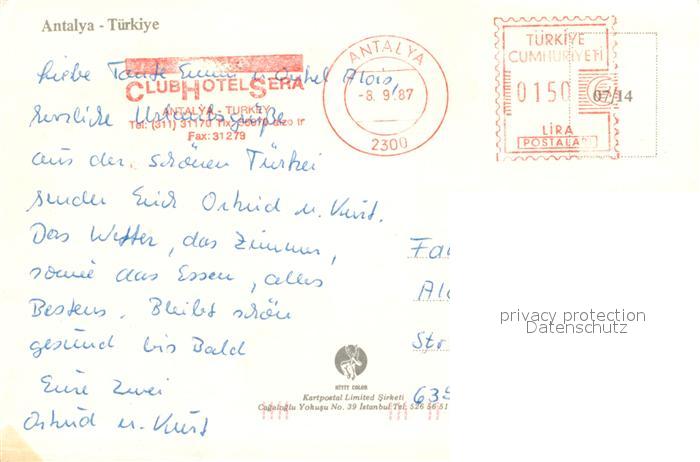 Antalya - Türkiye
Liebe Tante Emmi u. Onkel Alois,
CLUB HOTEL SERA
ANTALYA - TURKEY
Tel: (311) 31170
Fax: 31279
ANTALYA
-8. 9.87
2300
TÜRKİYE
CUMHURİYETİ
0150
LİRA
POSTALARI
07/14
herzliche Urlaubsgrüße
aus der schönen Türkei
senden Euch Ortrud u. Kurt.
Das Wetter, das Zimmer,
sowie das Essen, alles
Bestens. Bleibt schön
gesund bis Bald
Eure zwei
Ortrud u. Kurt
Fa
Al
Str
635
privacy protection
Datenschutz
HITIT COLOR
Kartpostal Limited Şirketi
Cağaloğlu Yokuşu No. 39 İstanbul Tel: 526 56 51